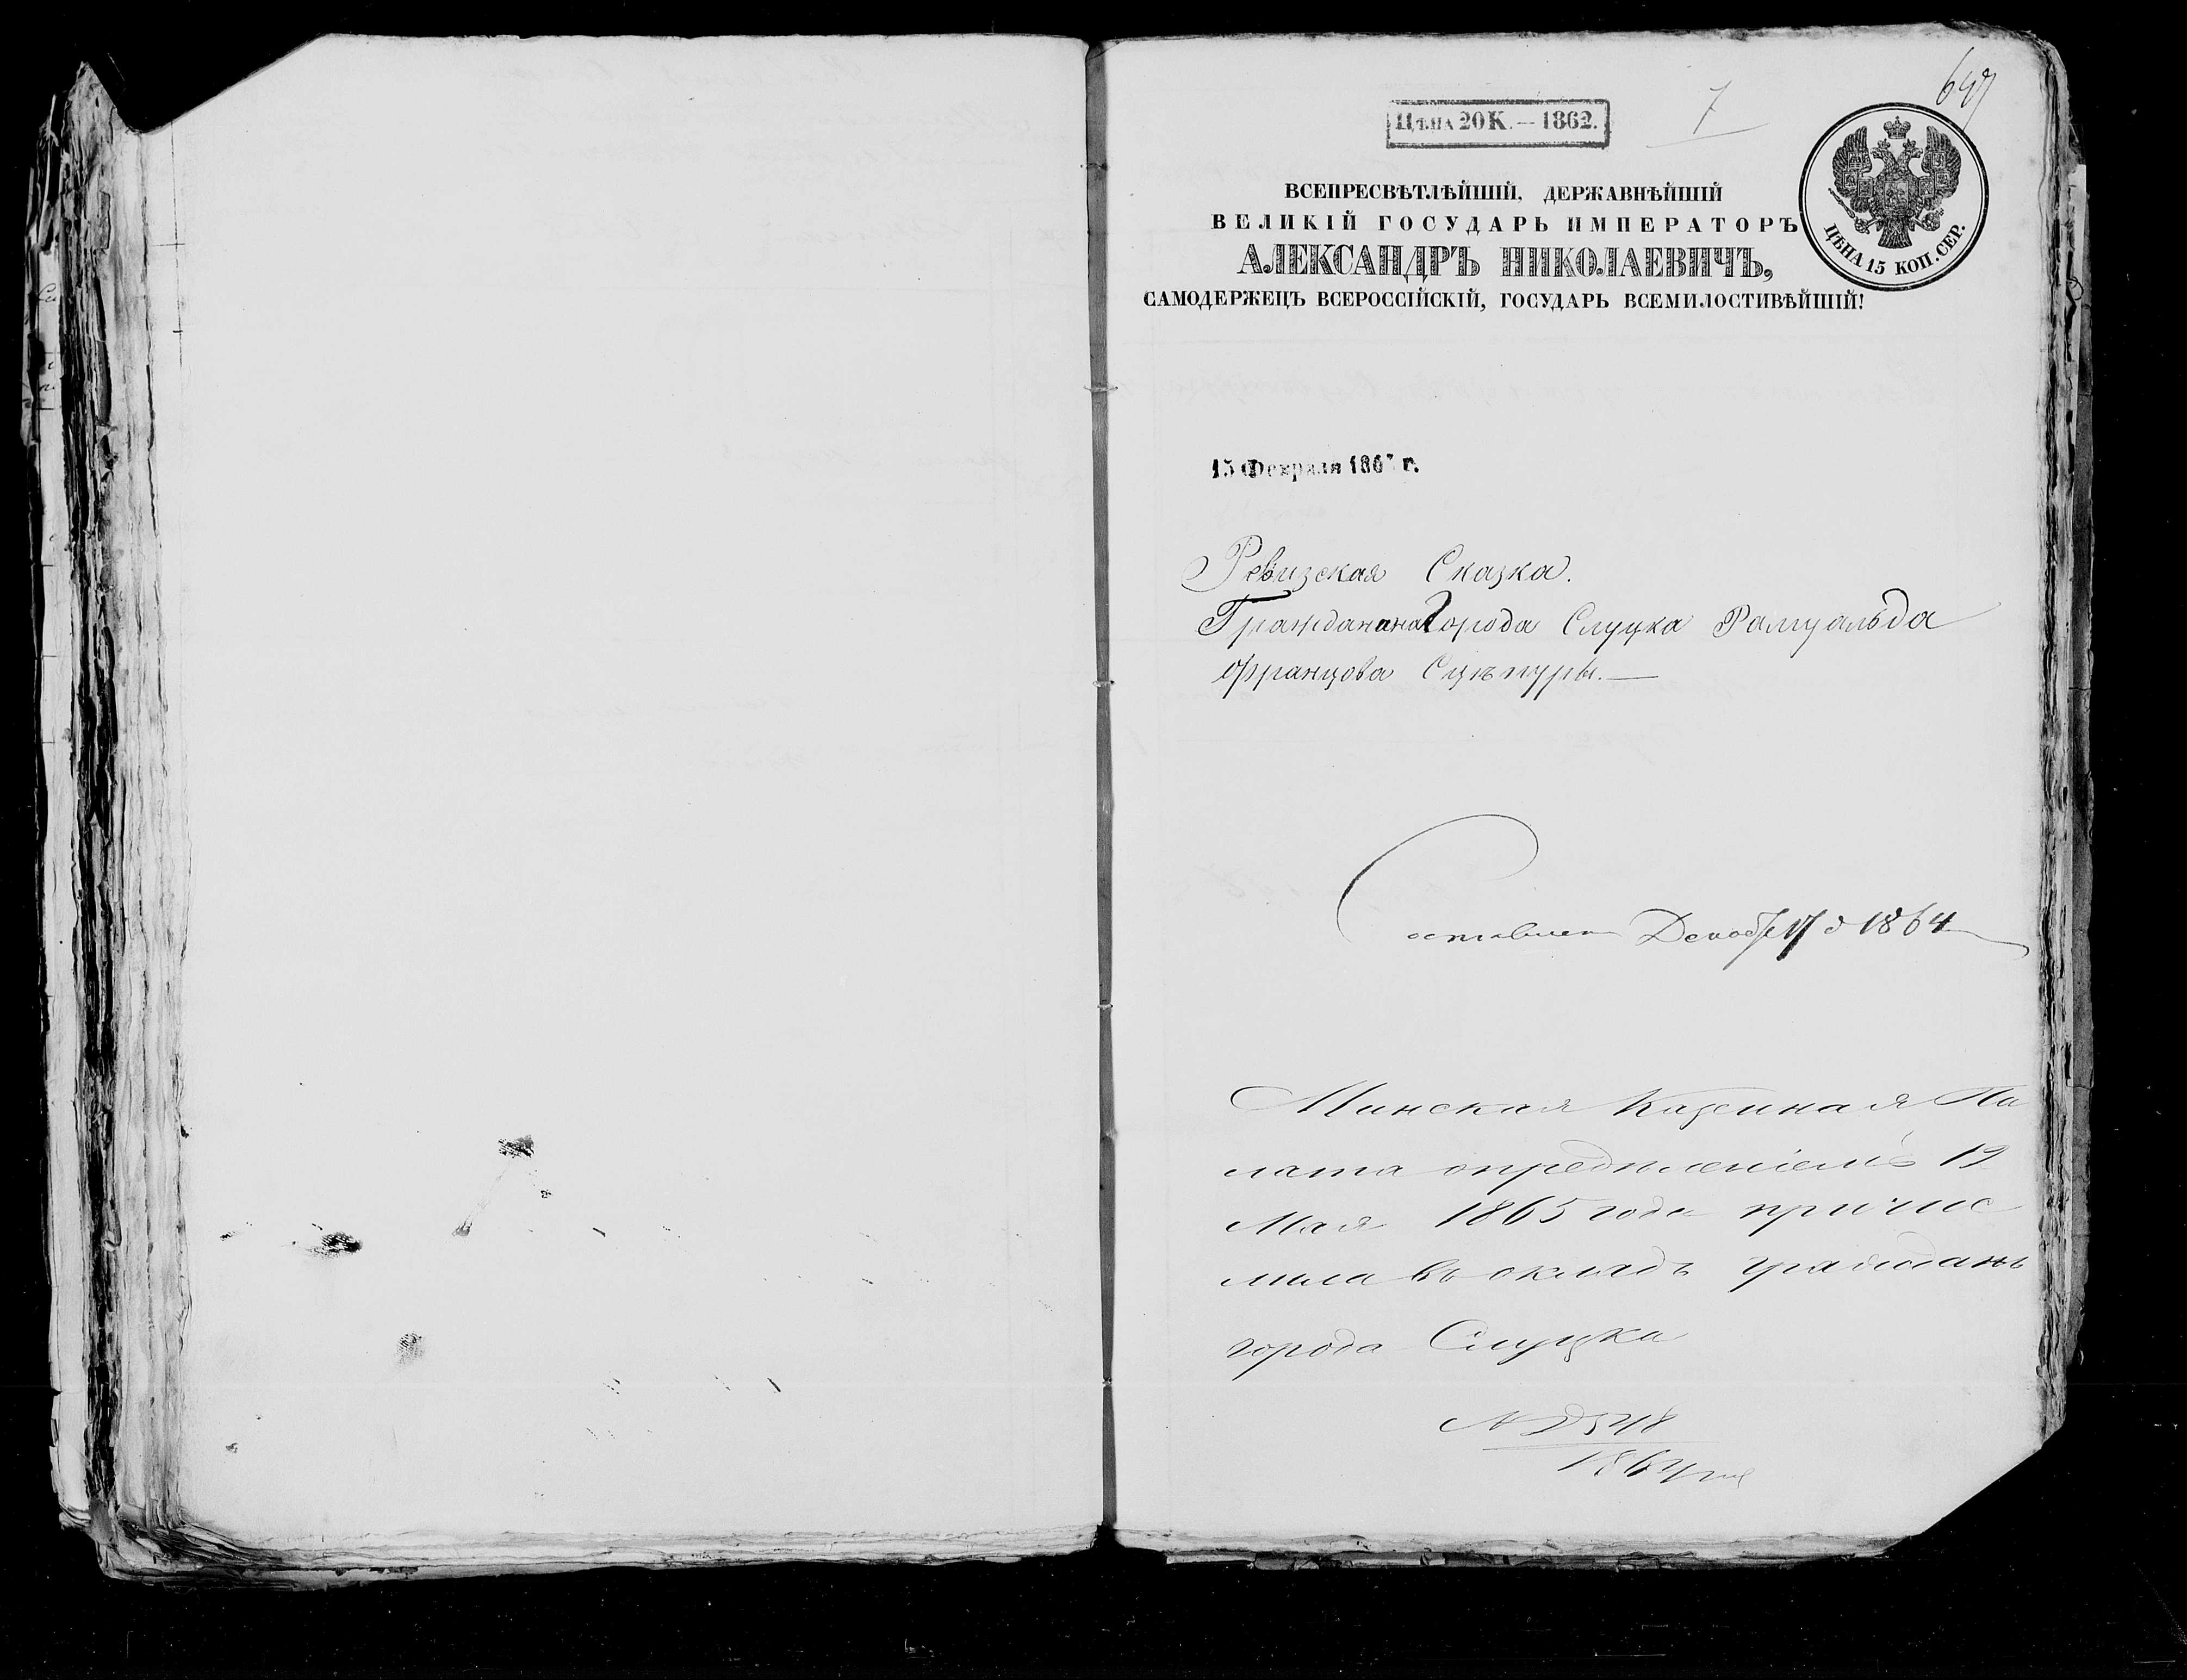 647
7
ЦѢНА 20 К. — 1862.
ЦѢНА 15 КОП. СЕР.
ВСЕПРЕСВѢТЛѢЙШІЙ, ДЕРЖАВНѢЙШІЙ
ВЕЛИКІЙ ГОСУДАРЬ ИМПЕРАТОРЪ
АЛЕКСАНДРЪ НИКОЛАЕВИЧЪ,
САМОДЕРЖЕЦЪ ВСЕРОССІЙСКІЙ, ГОСУДАРЬ ВСЕМИЛОСТИВѢЙШІЙ!
15 Февраля г.
Ревизская Сказка.
Гражданина Города Слуцка Рамуальда
Францова Сцѣпуры. —
Составлена 17 1864
Минская Казенная Па
лата опредѣленіемъ 19
Мая 1865 года причис
лила въ окладъ гражданъ
города Слуцка
№ 2548
1864